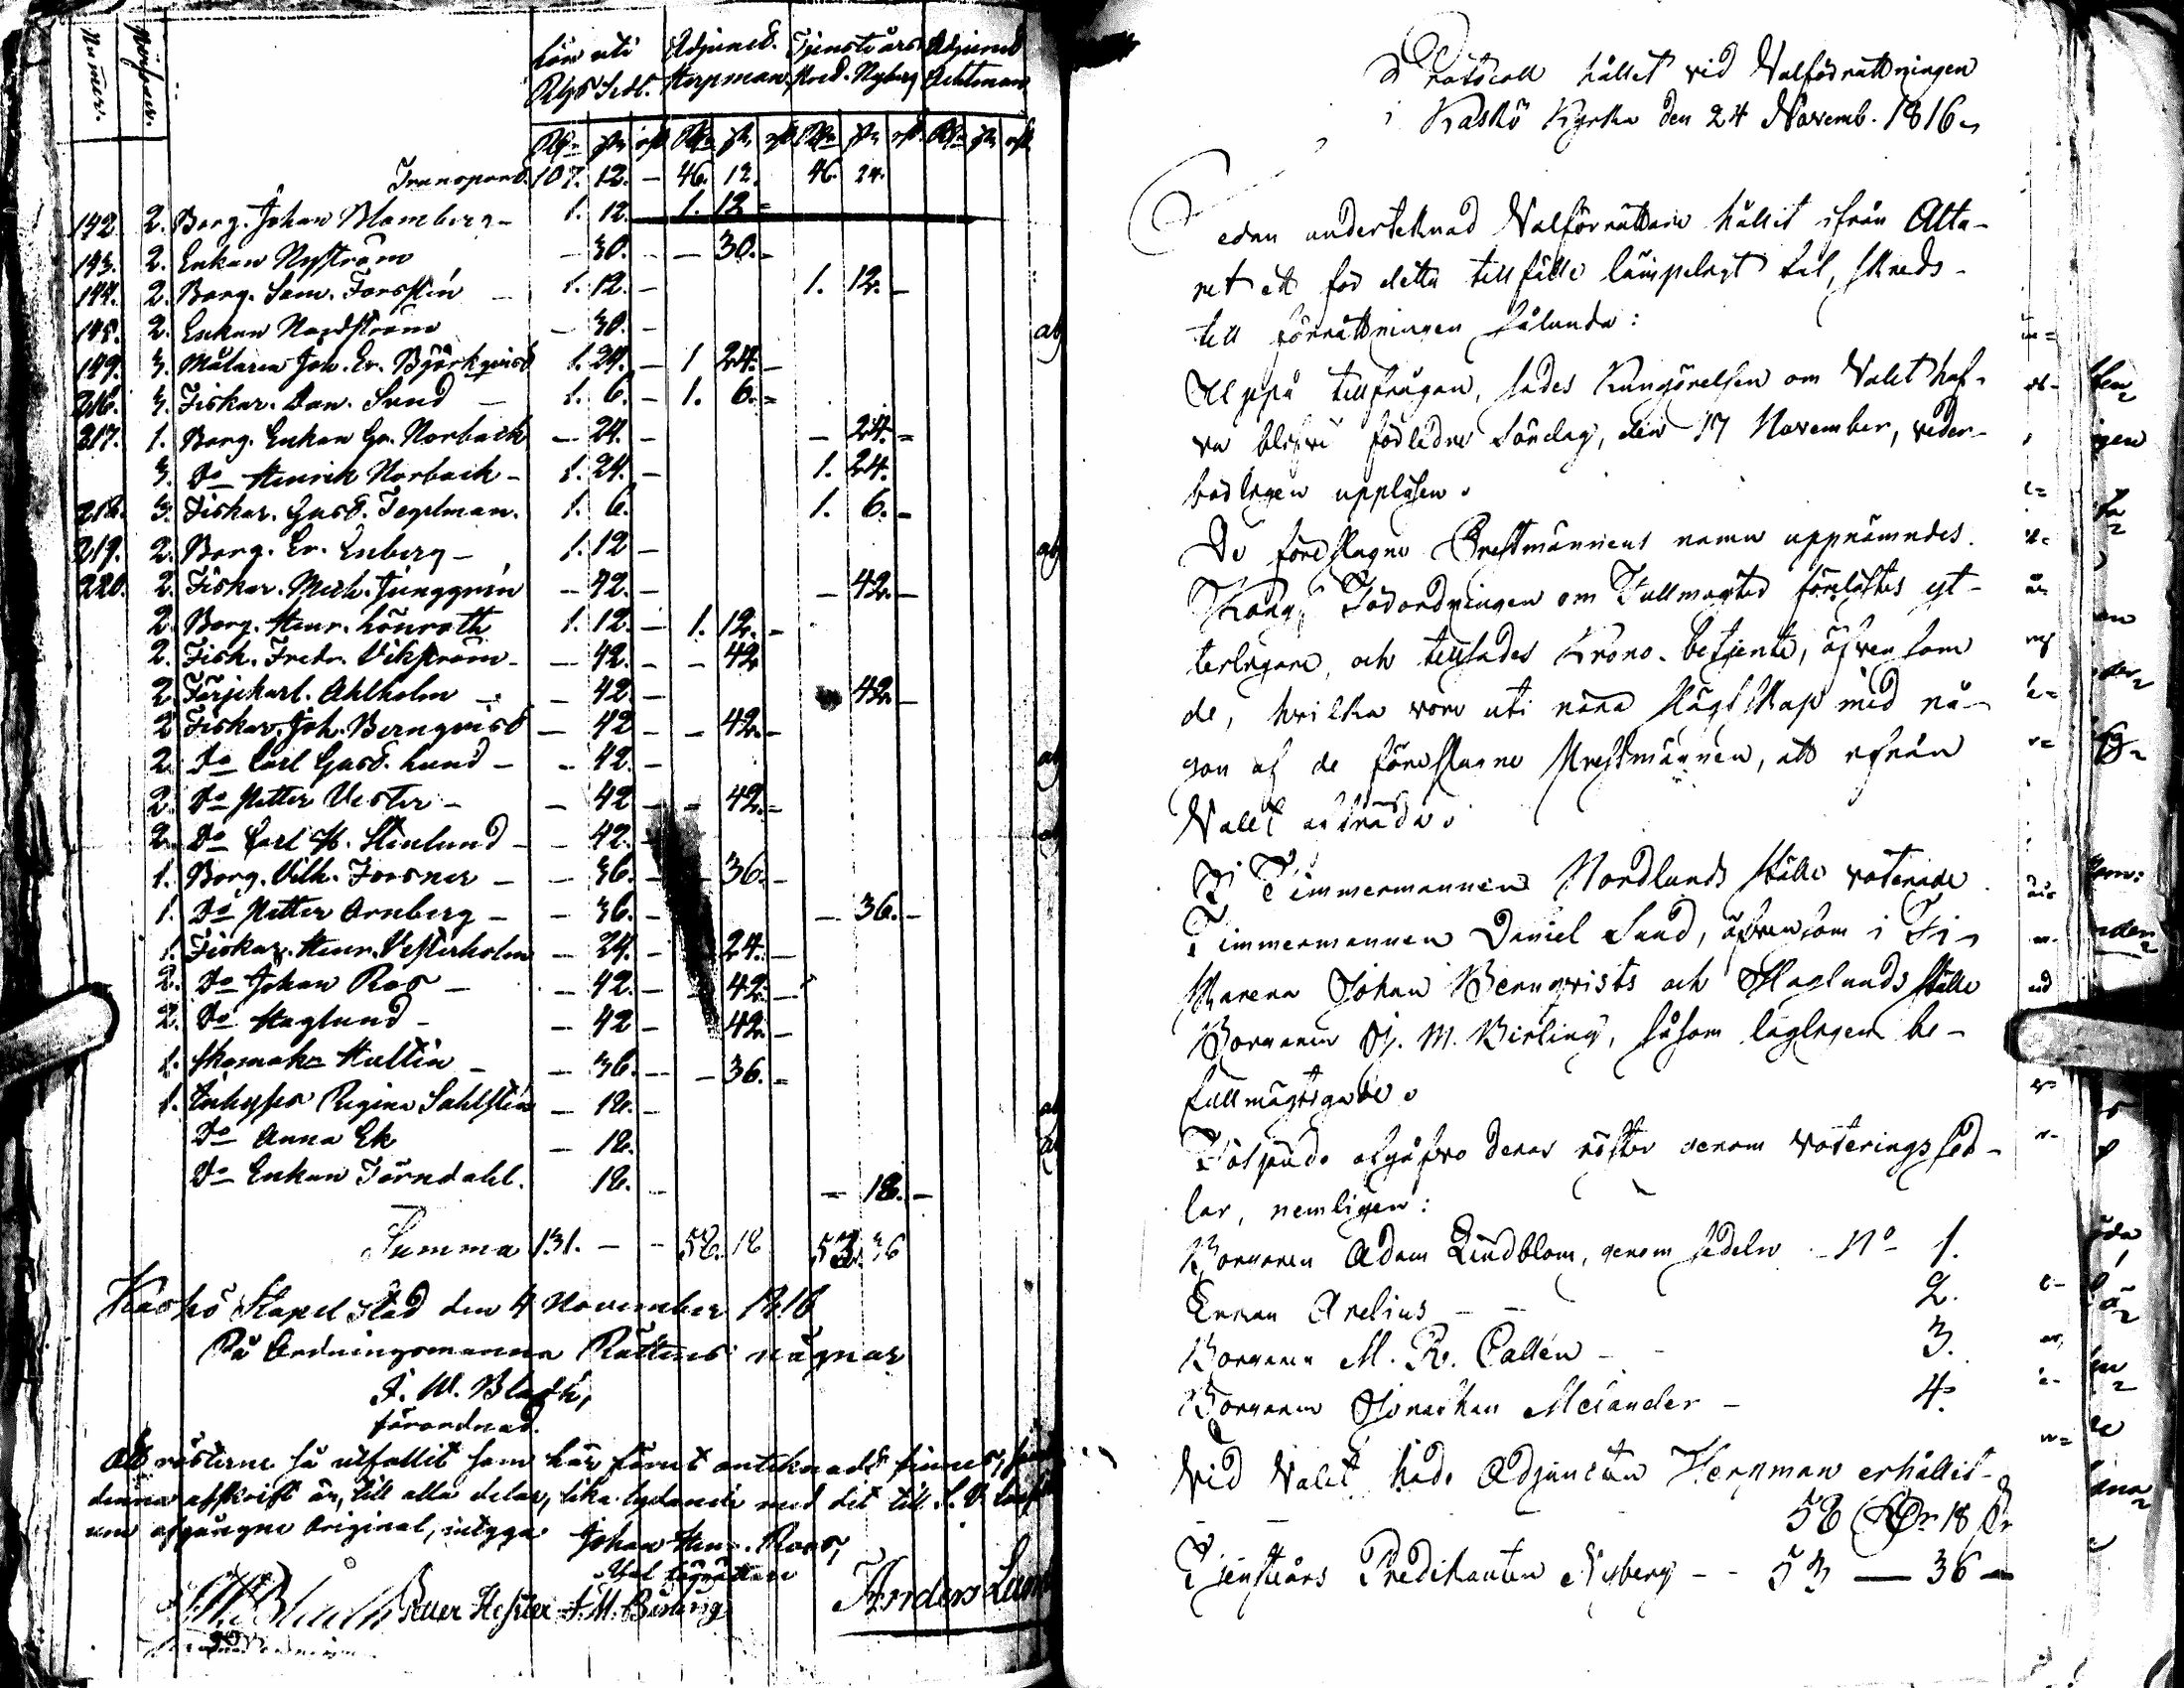 Numer. Personer. Lön uti Adjunct. Tjensteårs Adjunct
Rbs Sedl. Hergman. Pred. Nyberg Achtman
Transport. 107. 12. — 46. 12. 46. 24.
142 2. Borg. Johan Blomberg — 1. 12. 1. 12 =
143. 2. Enkan Nyström — 30. — — 30. =
144. 2. Borg. Sam. Forssten — 1. 12. — 1. 12. —
145. 2. Enkan Nordström — 30. —
149. 3. Målaren Joh. Er. Björkqvist 1. 24. — 1 24. —
216. 3. Fiskar. Dan. Sund — 1. 6. — 1. 6. =
217. 1. Borg. Enkan Gr. Norrback — 24. — — 24. =
3. Do Henrik Norrback — 1. 24. — 1. 24.
218. 3. Fiskar. Gust. Tegelman. 1. 6. 1. 6. —
219. 2. Borg. Er. Enberg — 1. 12 —
220. 2. Fiskar. Mich. Ljunggren — 42. — — 42. —
2. Borg. Henr. Lönroth 1. 12. — 1. 12. —
2. Fisk. Fredr. Vikström — — 42. — — 42
2. Färjekarl. Ahlholm — — 42. — 42. —
2 Fiskar. Joh. Bernqvist — 42 — — 42. —
2. Do Carl Gust. Lund — — 42. —
2. Do Petter Vester — — 42 — — 42. =
2. Do Carl H. Stenlund — — 42. —
1. Borg. Vilh. Forsner — — 36. — 36. —
1. Do Petter Arnberg — — 36. — — 36. —
1. Fiskar. Henr. Vesterholm — 24. — 24. —
2. Do Johan Ros — — 42. — 42. —
2. Do Haglund — — 42 — 42. —
1. Skomak. Hultin — — 36. — — 36. =
1. Inhyses Regina Sahlsten — 18. —
Do Anna Ek — 18.
Do Enkan Törndahl. 18. — — 18. —
Summa 131. — — 58. 18 53. 36
Kaskö Stapel Stad den 4 November 1816
På Ordningsmanna Rättens vägnar
J. W. Bladh,
förordnad.
Att rösterne så utfallit som här förut antecknadt finnes,
denna afskrift är, till alla delar, lika lydande med det till
afgångne Original, intyga Johan Henr. Roos,
Valförrättare
Petter Hester J. M. Birling Anders
Protocoll hållet vid Valförrättningen
i Kaskö Kyrka den 24 Novemb. 1816.
Sedan undertecknad Valförrättare hållit ifrån Alta-
ret ett för detta tillfälle lämpeligt tal, skreds
till förrättningen sålunda:
Uppå tillfrågan, sades Kungörelsen om Valet haf-
va blifvit förledne Söndag, den 17 November, veder-
börligen uppläsen.
De föreslagne Prestmännens namn uppnämndes.
Kongl. Förordningen om Fullmagter förelästes yt-
terligare, och tillsades Krono-betjente, äfvensom
de, hvilka voro uti nära slägtskap med nå-
gon af de föreslagne Prestmännen, att ifrån
Valet afträda.
I Timmermannen Nordlunds ställe voterade
Timmermannen Daniel Sund, äfvensom i Fi-
skaren Johan Bernqvists och Haglunds ställe
Borgaren J. M. Birling, såsom lagligen be-
fullmägtigade.
Följande afgåfvo deras röster genom voteringssed-
lar, nemligen:
Borgaren Adam Lindblom, genom sedeln — No 1.
Enkan Arelius — — 2.
Borgaren M. R. Callén — — 3.
Borgaren Jonathan Melander — 4.
Vid Valet hade Adjuncten Hergman erhållit
58 Rdr 18 sk
Tjensteårs Predikanten Nyberg — — 53 — 36 —